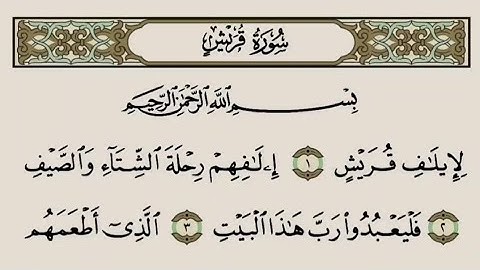 سُورَةُ قُرَيۡشٍ
بِسۡمِ ٱللَّهِ ٱلرَّحۡمَٰنِ ٱلرَّحِيمِ
لِإِيلَٰفِ قُرَيۡشٍ ١ إِۦلَٰفِهِمۡ رِحۡلَةَ ٱلشِّتَآءِ وَٱلصَّيۡفِ
٢ فَلۡيَعۡبُدُواْ رَبَّ هَٰذَا ٱلۡبَيۡتِ ٣ ٱلَّذِيٓ أَطۡعَمَهُم